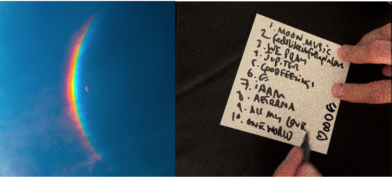 1. MOON MUSIC
2. feelslikeimfallinginlove
3. WE PRAY
4. JUPITER
5. GOOD FEELINGS
6.
7. iAAM
8. AETERNA
9. ALL MY LOVE
10. ONE WORLD